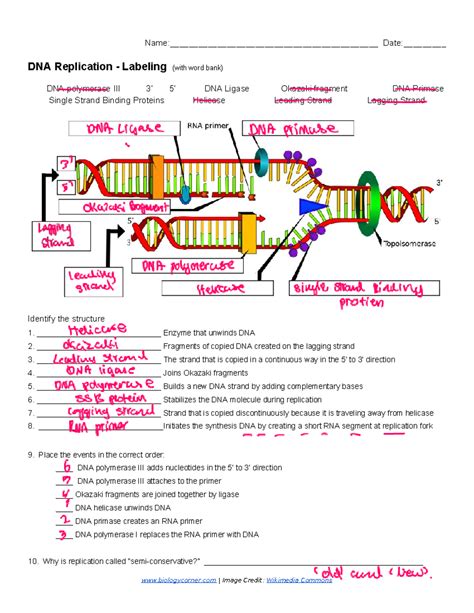 Name:____________________ Date:_________
DNA Replication - Labeling (with word bank)
DNA polymerase III 3' 5' DNA Ligase Okazaki fragment DNA Primase
Single Strand Binding Proteins Helicase Leading Strand Lagging Strand
DNA Ligase RNA primer DNA primase
3'
5'
3'
Okazaki fragment
5'
Lagging strand
5'
3'
Topoisomerase
Leading strand
DNA polymerase
Helicase
Single strand Binding protien
Identify the structure
1. Helicase Enzyme that unwinds DNA
2. Okazaki Fragments of copied DNA created on the lagging strand
3. Leading strand The strand that is copied in a continuous way in the 5' to 3' direction
4. DNA ligase Joins Okazaki fragments
5. DNA polymerase Builds a new DNA strand by adding complementary bases
6. SSB protein Stabilizes the DNA molecule during replication
7. Lagging strand Strand that is copied discontinuously because it is traveling away from helicase
8. RNA primer Initiates the synthesis DNA by creating a short RNA segment at replication fork
9. Place the events in the correct order:
6 DNA polymerase III adds nucleotides in the 5' to 3' direction
DNA polymerase III attaches to the primer
Okazaki fragments are joined together by ligase
1 DNA helicase unwinds DNA
2 DNA primase creates an RNA primer
3 DNA polymerase I replaces the RNA primer with DNA
10. Why is replication called "semi-conservative?" ____________________
'old' and
www.biologycorner.com | Image Credit: Wikimedia Commons